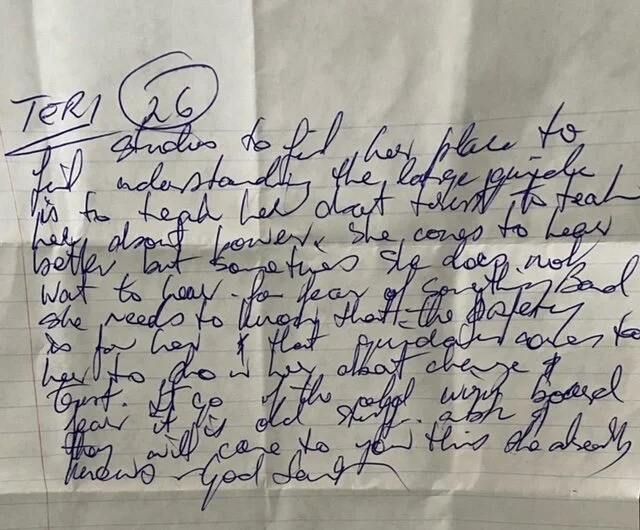 TERI 26
studies to find her place to
find understanding the large guide
is to teach her about trust to teach
her about power. she comes to hear
better but sometimes she does not
want to hear for fear of something Bad
she needs to know that the safety
is for her & that guidance comes to
her to do her about change &
trust. it go if the
fear it is old stuff. &
they will come to you this she already
knows God